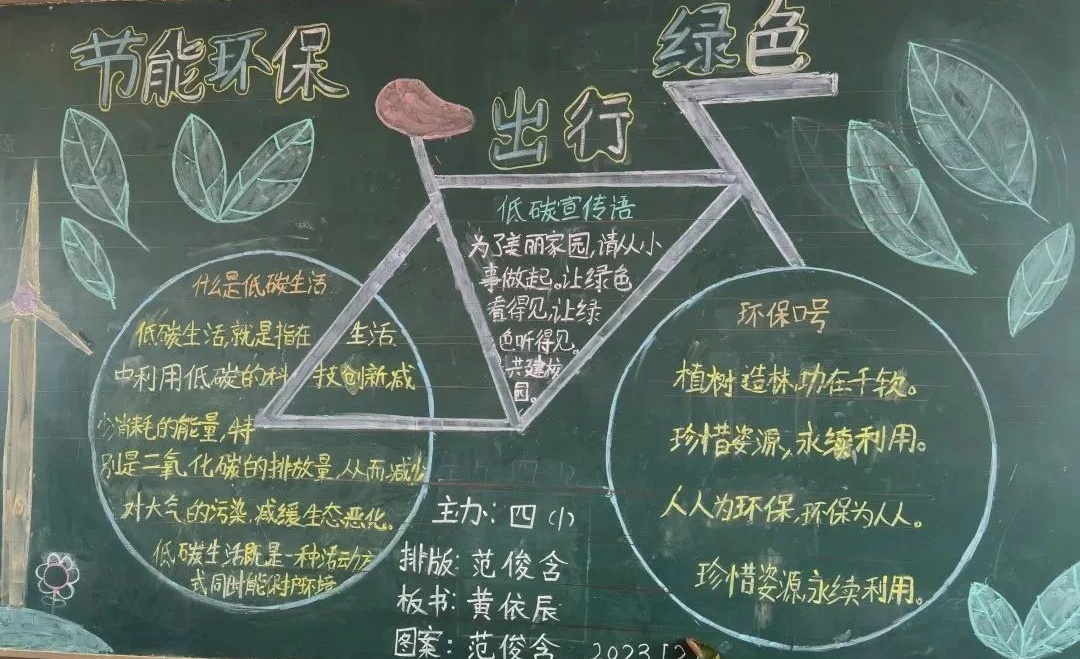 节能环保
绿色
出行
低碳宣传语
为了美丽家园,请从小
事做起。让绿色
看得见,让绿
色听得见。
共建校
园。
什么是低碳生活
低碳生活,就是指在 生活
中利用低碳的科 技创新减
少消耗的能量,特
别是二氧化碳的排放量,从而减少
对大气的污染,减缓生态恶化。
低碳生活既是一种活动方
式同时能保护环境
环保口号
植树造林,功在千秋。
珍惜资源,永续利用。
人人为环保,环保为人人。
珍惜资源,永续利用。
主办:四(1)
排版:范俊含
板书:黄依辰
图案:范俊含 2023.12